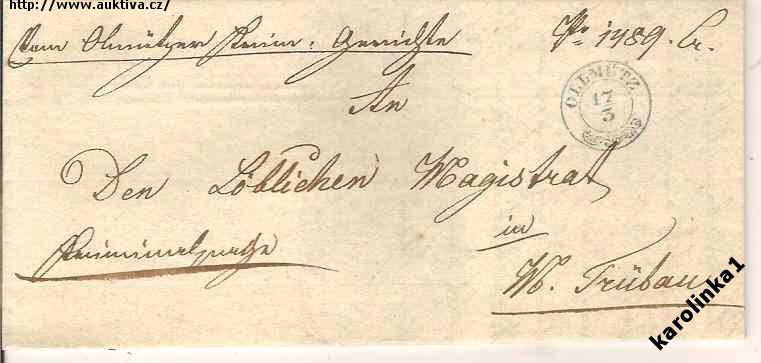 http://www.auktiva.cz/
Vom Olmützer Krim: Gerichte
Nr 1489. Cr.
OLLMÜTZ
17
3
An
Den Löblichen Magistrat
in
Kriminalsache
M. Trübau
karolinka1